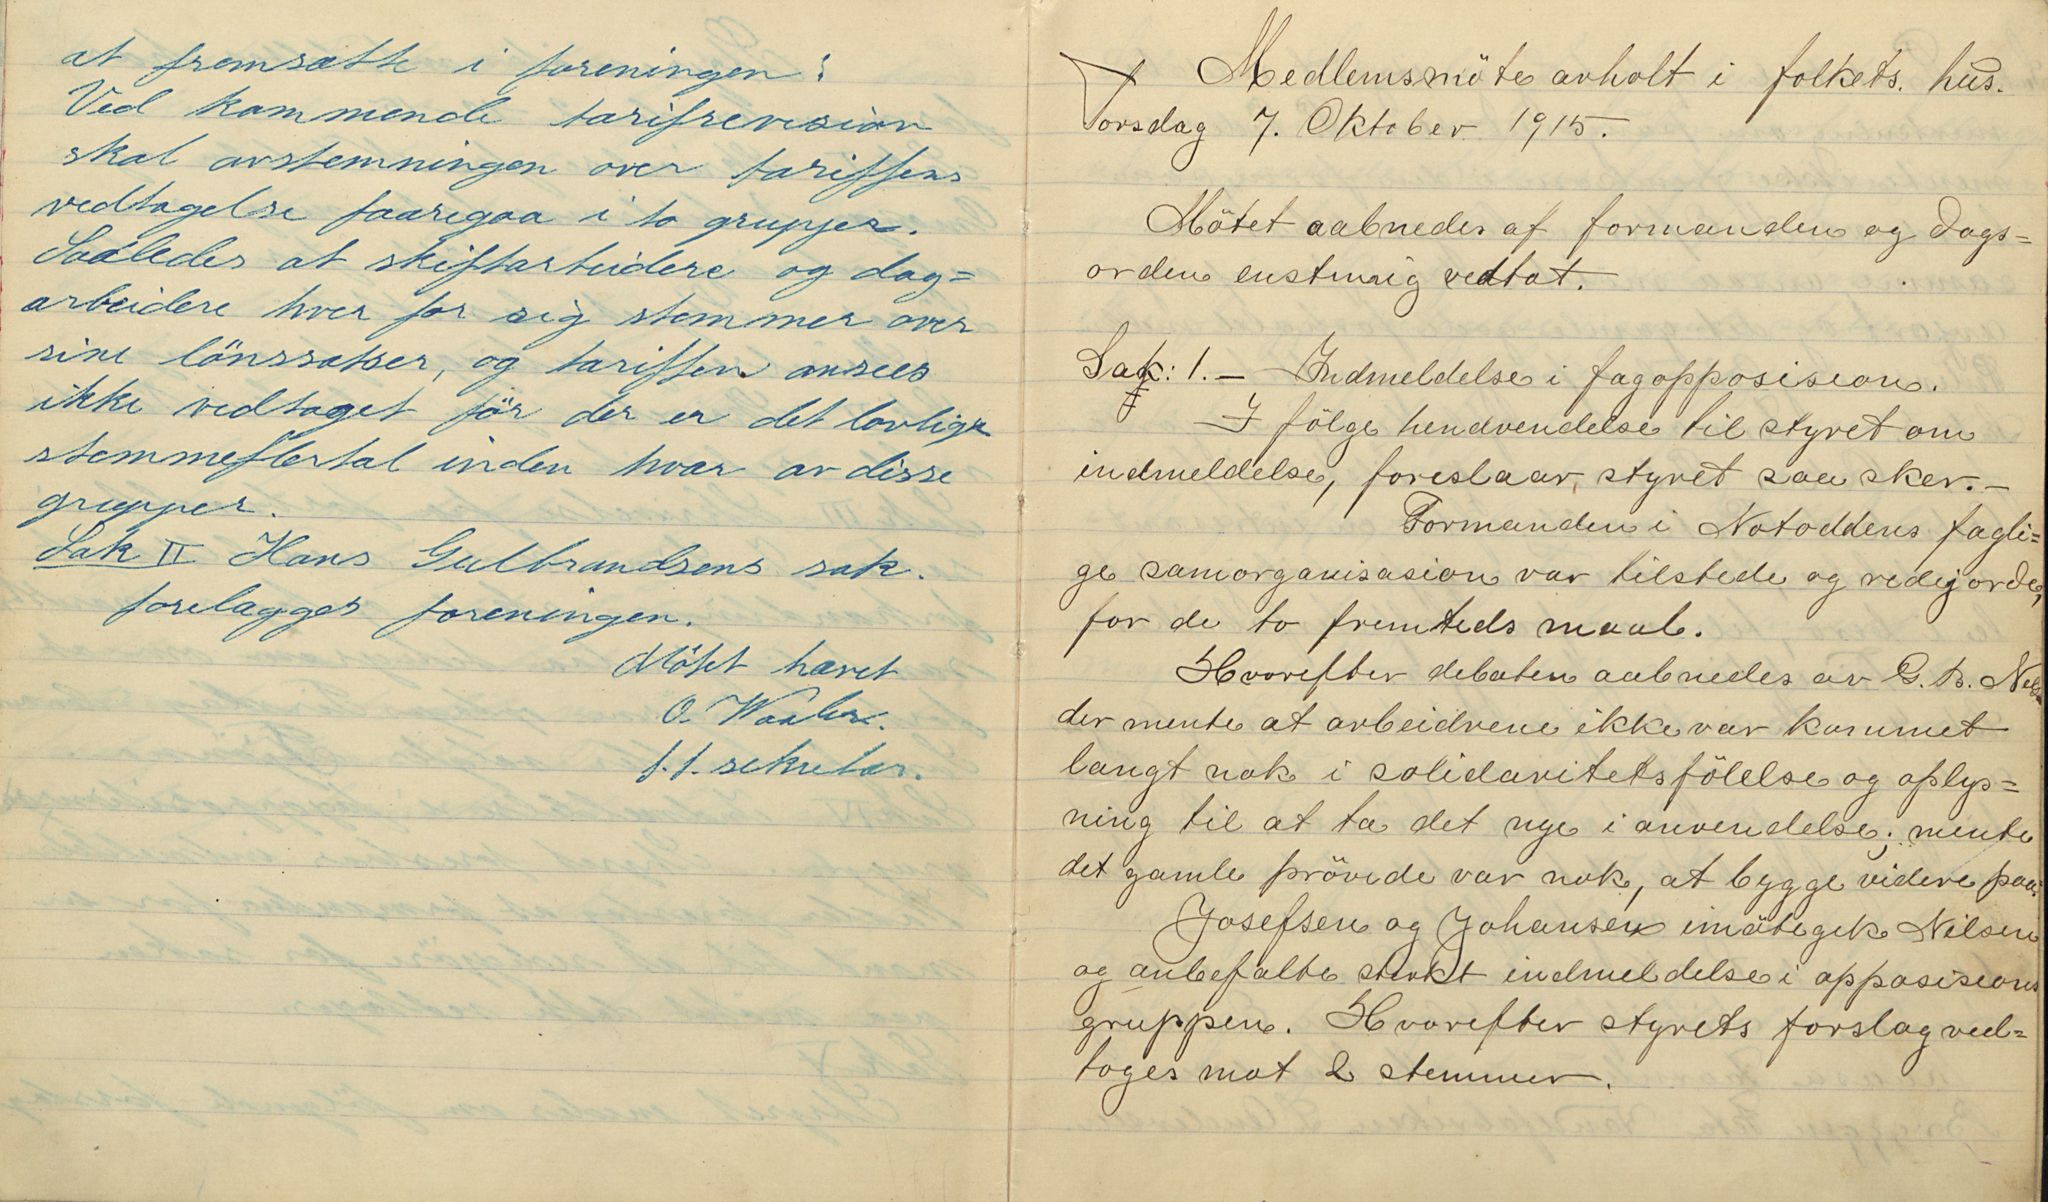 at fremsætte i foreningen:
Ved kommende tarifrevision
skal avstemningen over tariffens
vedtagelse foaregaa i to grupper.
Saaledes at skiftarbeidere og dag=
arbeidere hver for sig stemmer over
sine lönssatser, og tariffen ansees
ikke vedtaget för der er det lovlige
stemmeflertal inden hver av disse
grupper.
Sak II Hans Gulbrandsens sak.
forelægges foreningen.
Mötet hævet
O. Waaler.
f.f. sekretær.
Medlemsmöte avholt i folkets. hus.
Torsdag 7. Oktober 1915.
Mötet aabnedes af formanden og dags=
orden enstmig vedtat.
Sak: 1. – Indmeldelse i fagopposision.
I fölge hendvendelse til styret om
indmeldelse, foreslaar styret saa sker. –
Formanden i Notoddens fagli=
ge samorganisasion var tilstede og redejorde,
for de to fremtids maal.
Hvorefter debaten aabnedes av G. B. Nels
der mente at arbeidrene ikke var kommet
langt nok i solidaritetsfölelse og oplys=
ning til at ta det nye i anvendelse; mente
det gamle prövede var nok, at bygge videre paa.
Josefsen og Johansen imötegik Nilsen
og anbefalte sterkt indmeldelse i opposisions
gruppen. Hvorefter styrets forslag ved=
toges mot 2 stemmer.